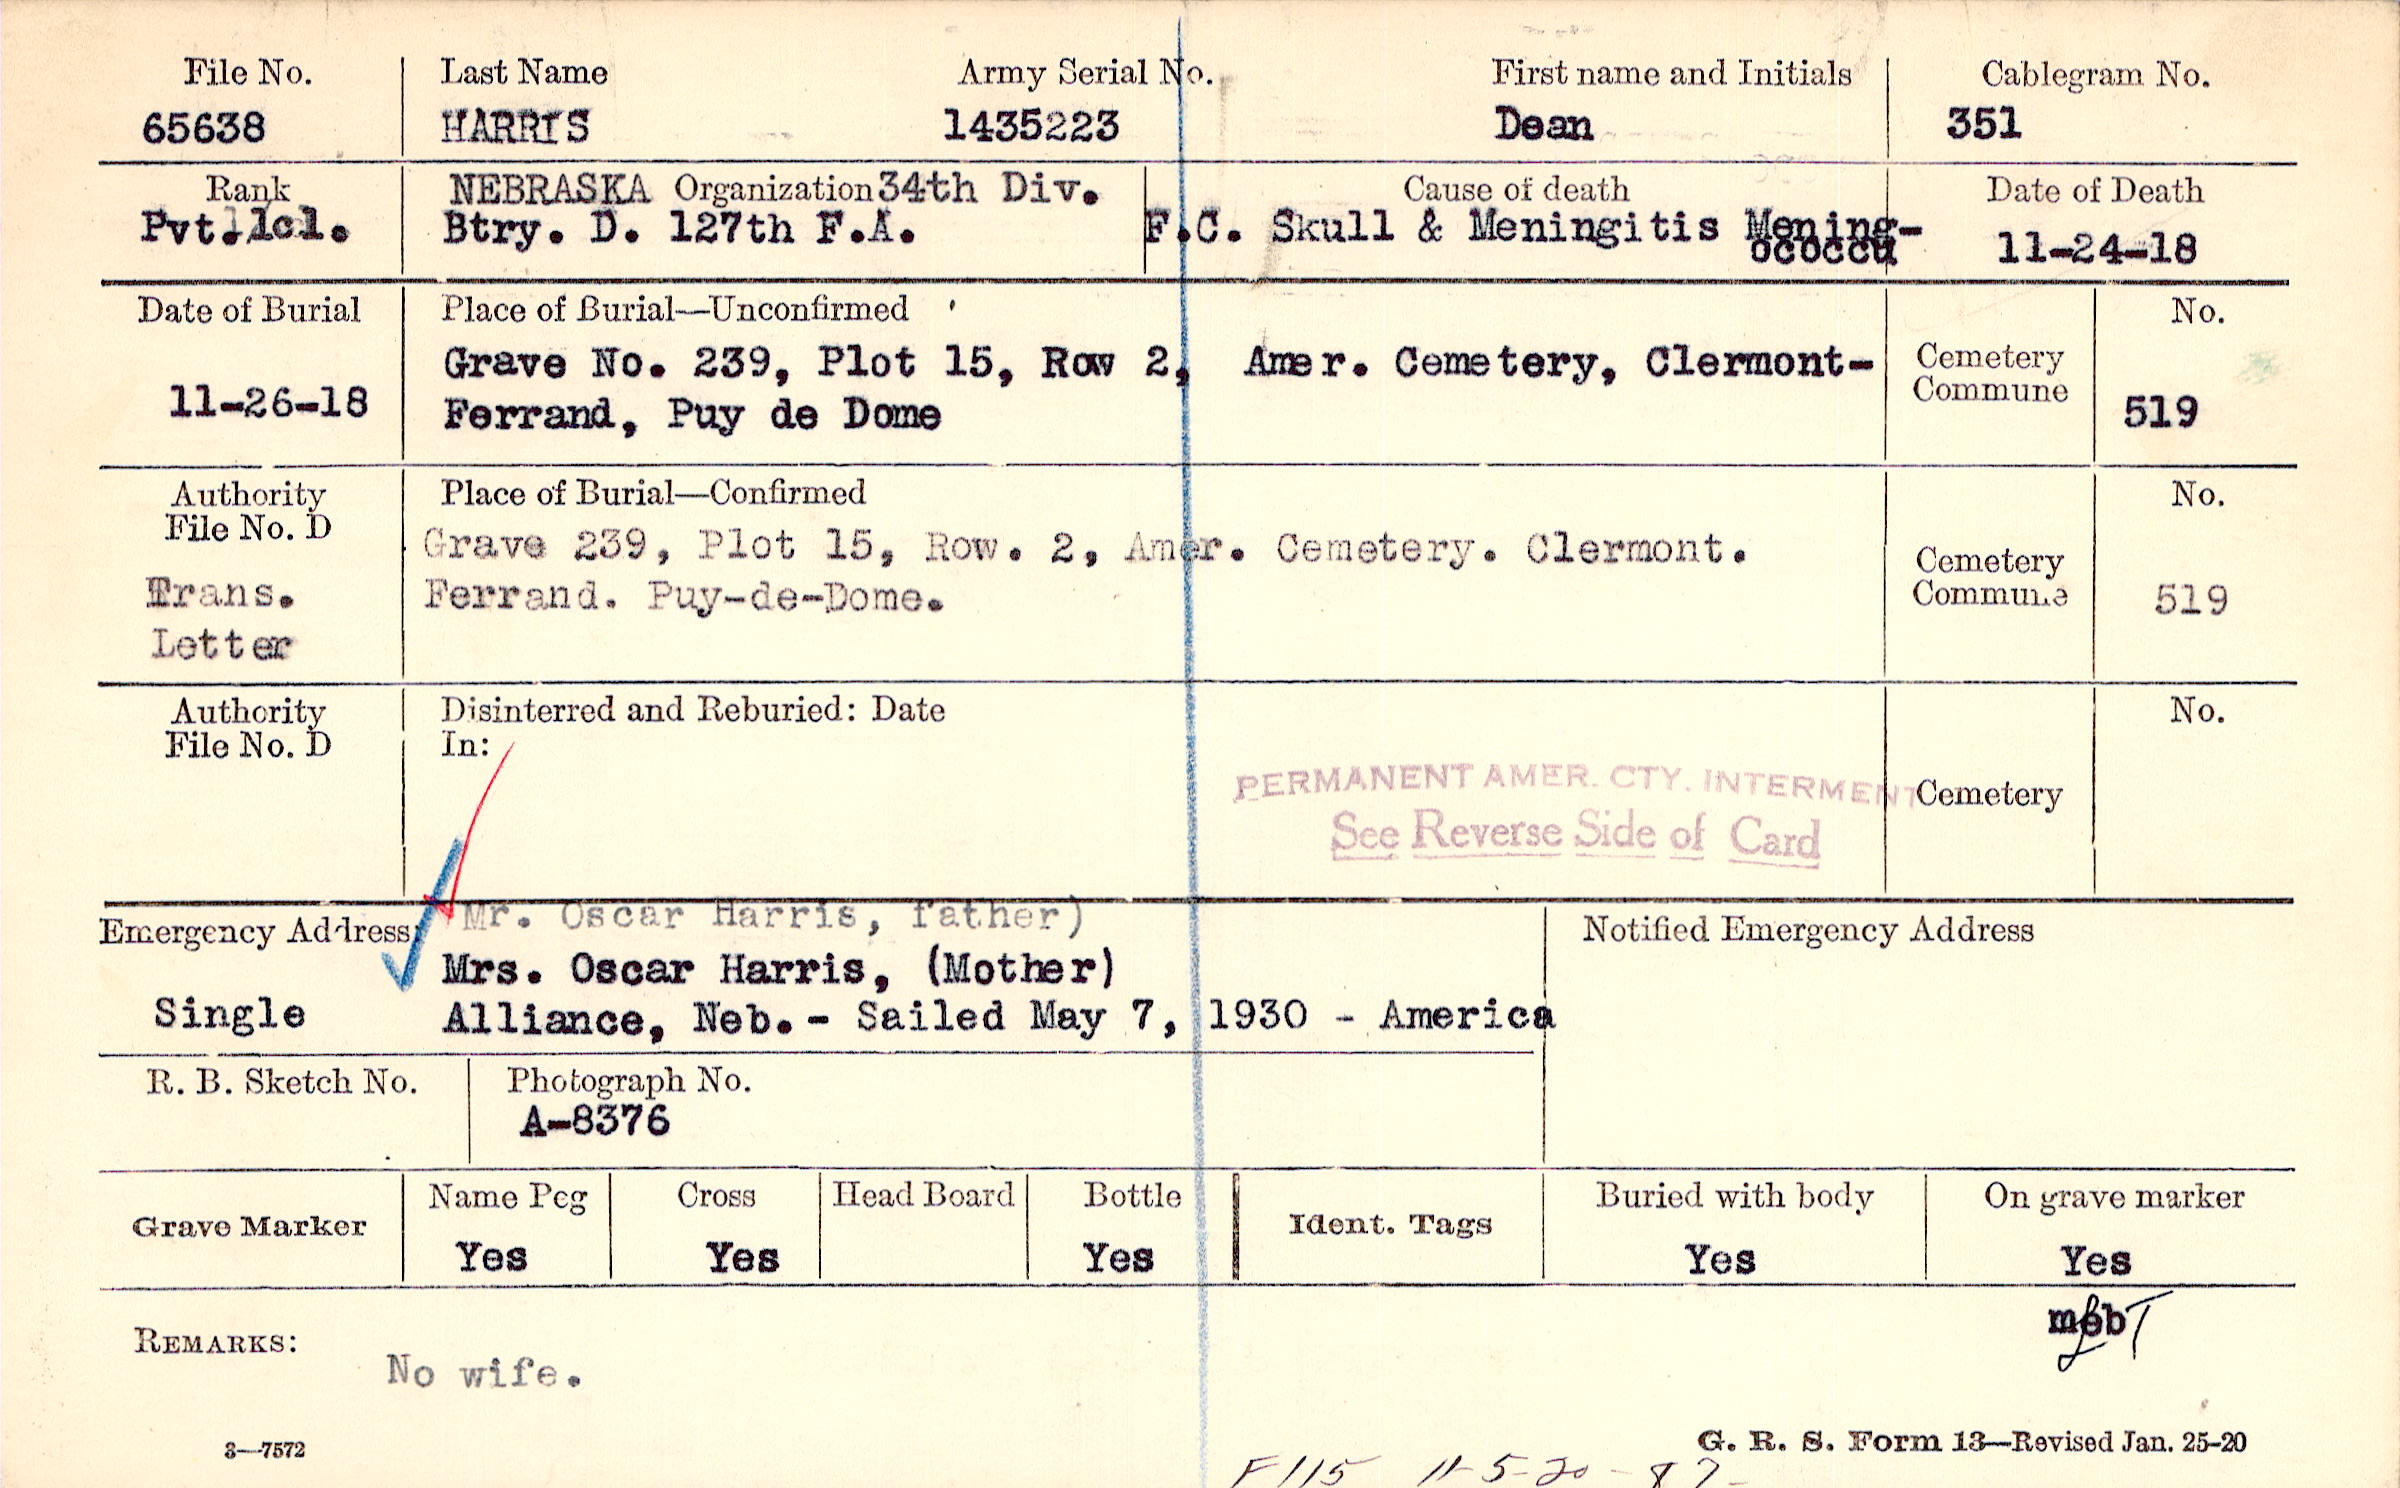 File No. Last Name Army Serial No. First name and Initials Cablegram No.
65638 HARRIS 1435223 Dean 351
Rank NEBRASKA Organization 34th Div. Cause of death Date of Death
Pvt. 1cl. Btry. D. 127th F.A. F.C. Skull & Meningitis Mening-
ococcu 11-24-18
Date of Burial Place of Burial—Unconfirmed No.
Grave No. 239, Plot 15, Row 2, Amer. Cemetery, Clermont- Cemetery
Commune
11-26-18 Ferrand, Puy de Dome 519
Authority Place of Burial—Confirmed No.
File No. D
Grave 239, Plot 15, Row. 2, Amer. Cemetery. Clermont. Cemetery
Trans. Ferrand. Puy-de-Dome. Commune 519
Letter
Authority Disinterred and Reburied: Date No.
File No. D In:
PERMANENT AMER. CTY. INTERMENT Cemetery
See Reverse Side of Card
Mr. Oscar Harris, father)
Emergency Address: Notified Emergency Address
Mrs. Oscar Harris, (Mother)
Single Alliance, Neb. - Sailed May 7, 1930 - America
R. B. Sketch No. Photograph No.
A-8376
Name Peg Cross Head Board Bottle Buried with body On grave marker
Grave Marker Ident. Tags
Yes Yes Yes Yes Yes
REMARKS:
No wife.
3—7572 G. R. S. Form 13—Revised Jan. 25-20
F115 11-5-20